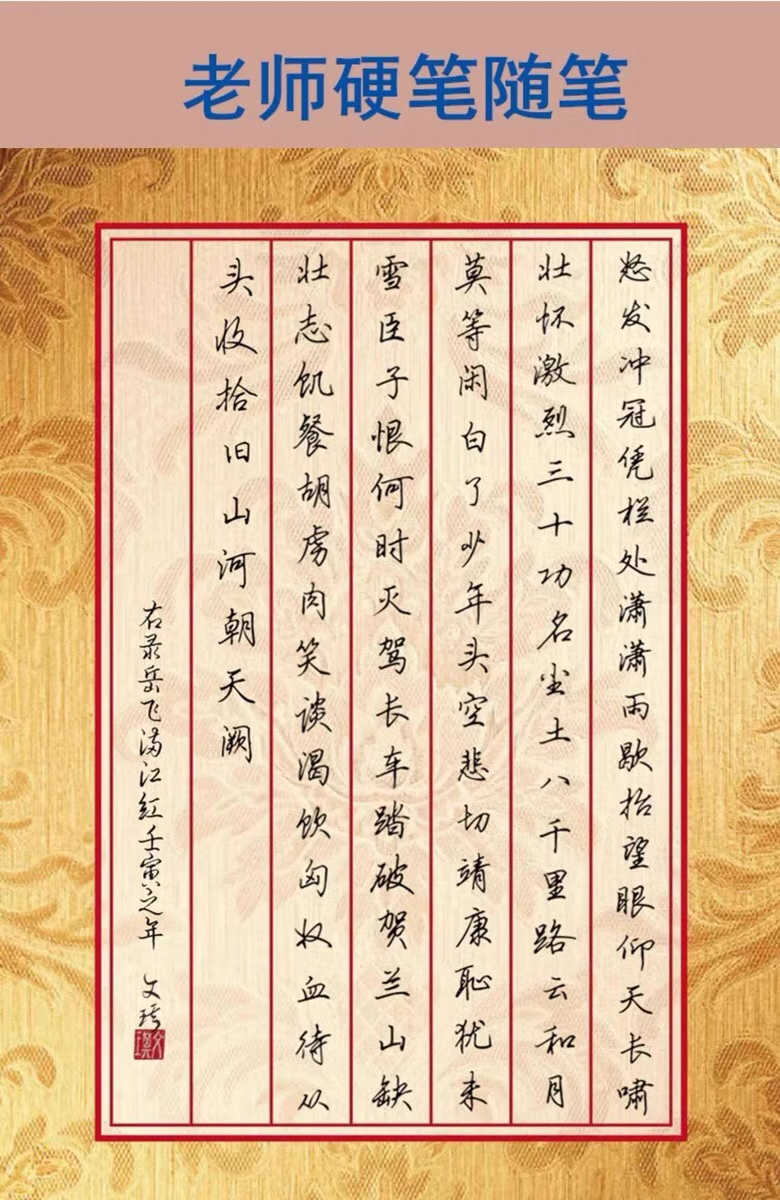 老师硬笔随笔
怒发冲冠凭栏处潇潇雨歇抬望眼仰天长啸
壮怀激烈三十功名尘土八千里路云和月
莫等闲白了少年头空悲切靖康耻犹未
雪臣子恨何时灭驾长车踏破贺兰山缺
壮志饥餐胡虏肉笑谈渴饮匈奴血待从
头收拾旧山河朝天阙
右录岳飞满江红壬寅之年 文